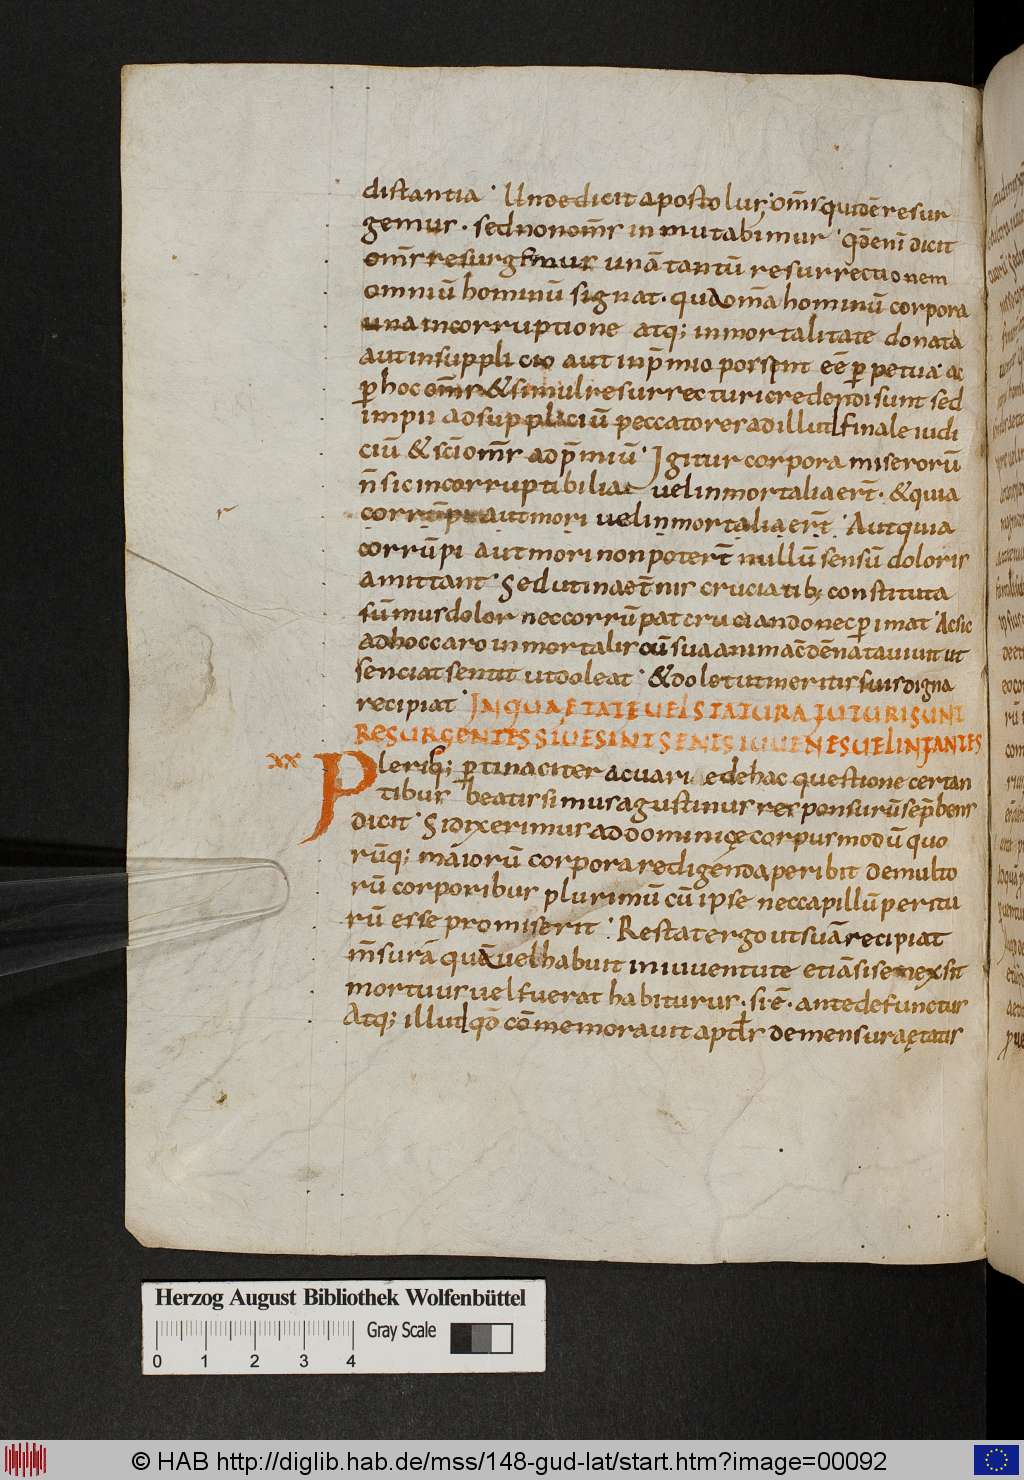 distantia · Unde dicit apostolus; om̄s quidē resur
gemus · sed non om̄s inmutabimur · qd̄ enī dicit
om̄s resurgemus unā tantū resurrectionem
omniū hominū signat · quia om̄a hominū corpora
una incorruptione atq; inmortalitate donata
aut insupplicio aut inp̄mio possent eē ꝑpetua · ac
ꝑ hoc om̄s & simul resurrecturi credendi sunt sed
impii ad suppliciū peccatores ad illud finale iudi
ciū & sc̄i om̄s ad p̄miū · Igitur corpora miserorū
n̄ sic incorruptibilia vel inmortalia er̄t · & quia
corrūpi aut mori vel inmortalia er̄t · Aut quia
corrūpi aut mori non poter̄t nullū sensū doloris
amittant · Sed ut in aet̄nis cruciatib; constituta
sūmus dolor nec corrūpat cruciando nec ꝑimat · Ac sic
ad hoc caro inmortalis cū sua anima c̄dēnata vivit ut
senciat sentit ut doleat · & dolet ut meritis suis digna
recipiat · IN QUA ETATE UEL STATURA FUTURI SUNT
RESURGENTES SIUE SINT SENES IUUENES UEL INFANTES
xx Pleriq; ꝑtinaciter acuari edehac questione certan
tibus beatissimus agustinus responsurū se p̄bens
dicit · Si dixerimus ad dominicę corpus modū quo
rūq; māiorū corpora redigenda peribit demulto
rū corporibus plurimū cū ipse nec capillū peritu
rū esse promiserit · Restat ergo ut suā recipiat
m̄surā quā vel habuit in iuventute etiāsi senex sit
mortuus vel fuerat habiturus · si ē · ante defunctus
Atq; illud qd̄ cōmemoravit aptl̄s de mensura ętatis
Herzog August Bibliothek Wolfenbüttel
Gray Scale
0 1 2 3 4
© HAB http://diglib.hab.de/mss/148-gud-lat/start.htm?image=00092